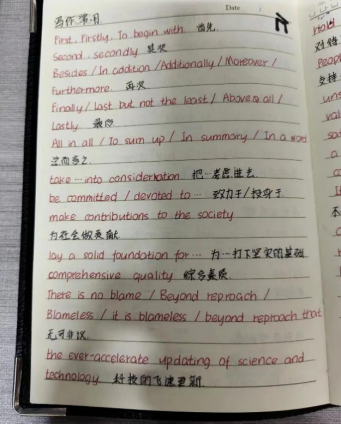 Date
写作常用
First, Firstly, To begin with 首先
Second, secondly 其次
Besides / In addition / Additionally / Moreover /
Furthermore 再次
Finally / Last but not the least / Above all /
Lastly 最后
All in all / To sum up / In summary / In a word
总而言之
take … into consideration 把…考虑进去
be committed / devoted to … 致力于/投身于
make contributions to the society
为社会做贡献
lay a solid foundation for … 为…打下坚实的基础
comprehensive quality 综合素质
There is no blame / Beyond reproach /
Blameless / it is blameless / beyond reproach that
无可非议
the ever-accelerate updating of science and
technology 科技的飞速更新